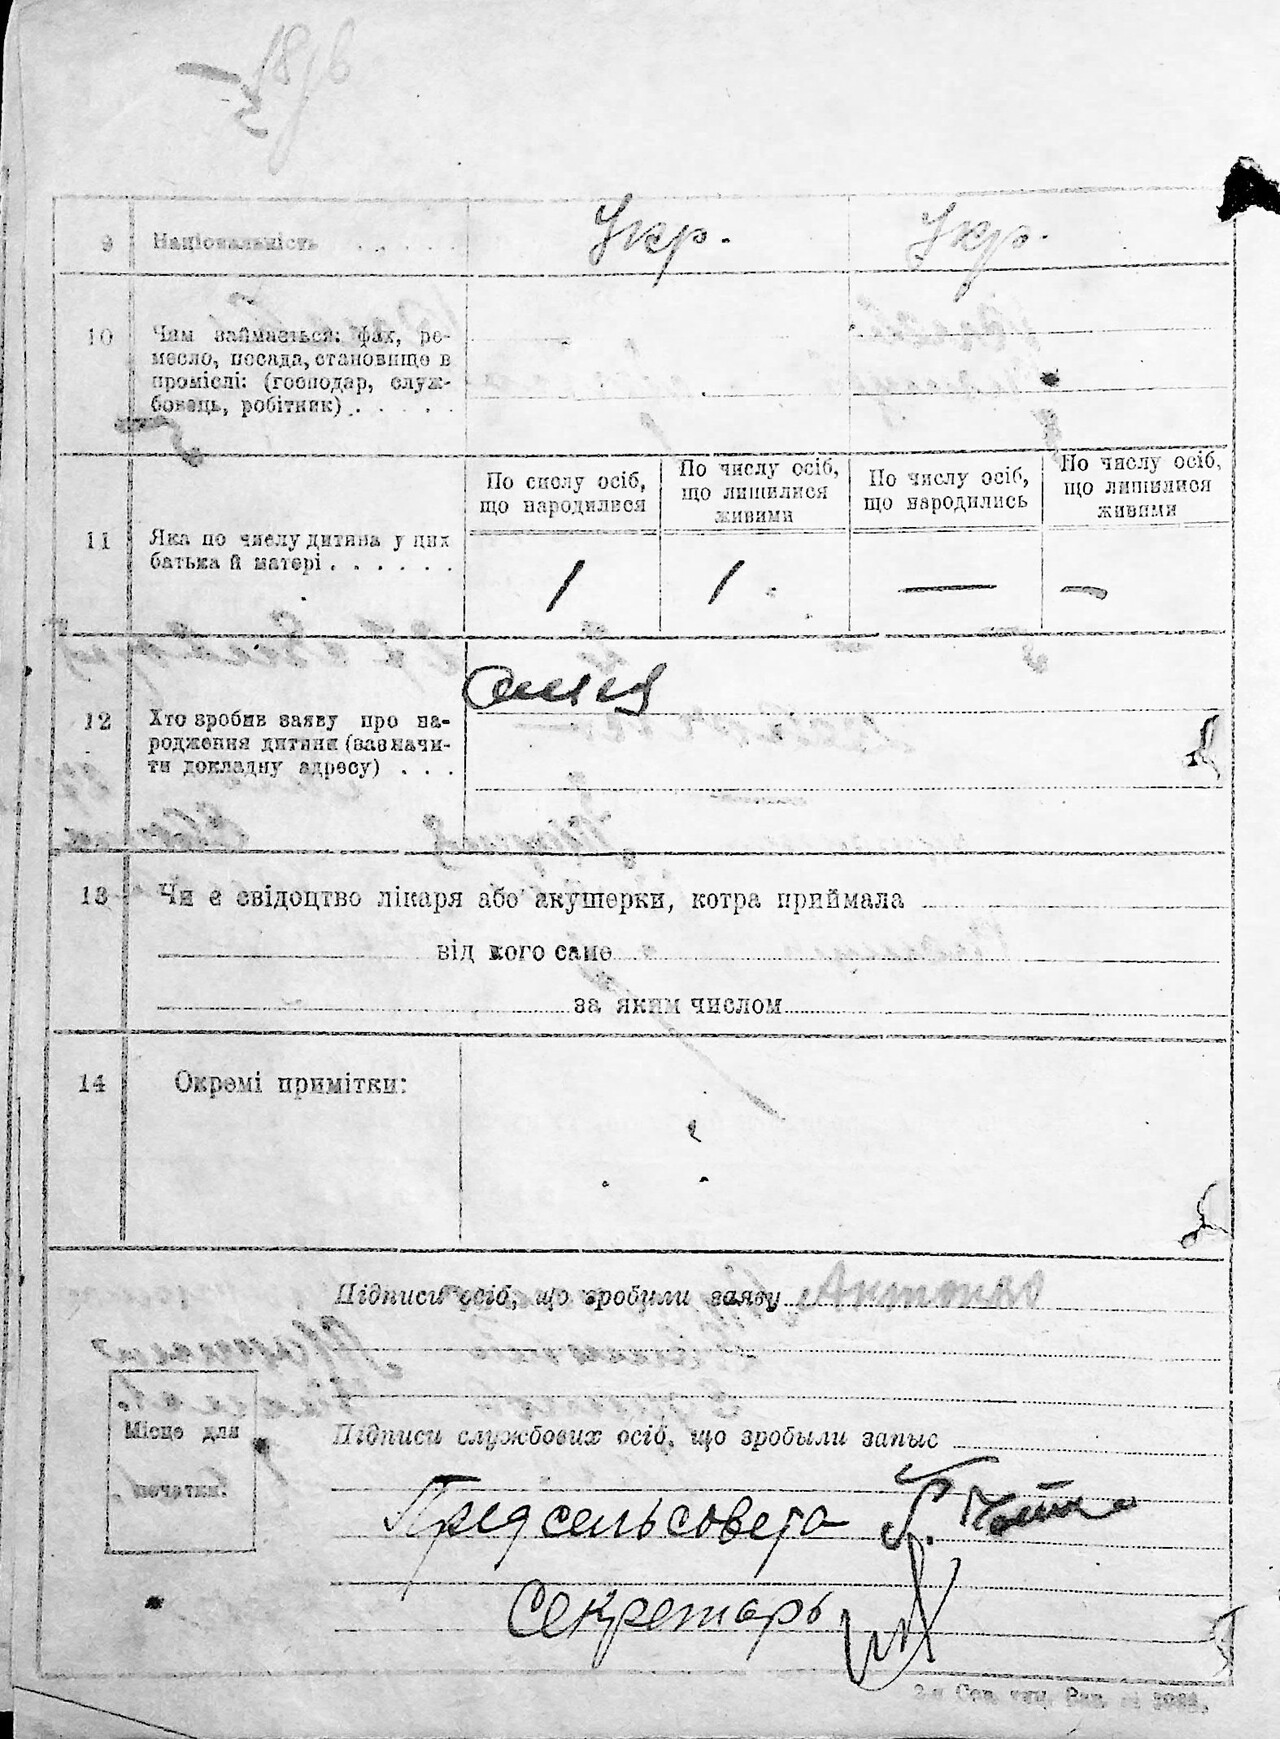 9 Національність
Укр. Укр.
10 Чим займається: фах, ре-
месло, посада, становище в
проміслі: (господар, служ-
бовець, робітник)
По числу осіб,
що народилися
По числу осіб,
що лишилися
живими
По числу осіб,
що народились
По числу осіб,
що лишилися
живими
11 Яка по числу дитина у цих
батька й матері
1 1 — —
12 Хто зробив заяву про на-
родження дитини (зазначи-
ти докладну адресу)
13 Чи є свідоцтво лікаря або акушерки, котра приймала
від кого саме
за яким числом
14 Окремі примітки:
Підписи осіб, що зробили заяву
Місце для
печатки:
Підписи службових осіб, що зробыли запыс
Предсельсовета
Секретарь